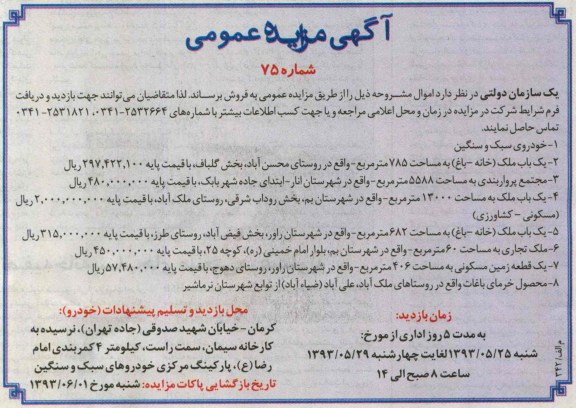 آگهی مزایده عمومی
شماره ۷۵
یک سازمان دولتی در نظر دارد اموال مشروحه ذیل را از طریق مزایده عمومی به فروش برساند. لذا متقاضیان می‌توانند جهت بازدید و دریافت
فرم شرایط شرکت در مزایده در زمان و محل اعلامی مراجعه و یا جهت کسب اطلاعات بیشتر با شماره‌های ۲۵۳۲۶۶۴-۰۳۴۱، ۲۵۳۱۸۲۱-۰۳۴۱
تماس حاصل نمایند.
۱-خودروی سبک و سنگین
۲-یک باب ملک (خانه -باغ) به مساحت ۷۸۵ مترمربع-واقع در روستای محسن آباد، بخش گلباف، با قیمت پایه ۲۹۷,۴۲۲,۱۰۰ ریال
۳-مجتمع پرواربندی به مساحت ۵۵۸۸ مترمربع-واقع در شهرستان انار-ابتدای جاده شهربابک، با قیمت پایه ۴۸۰,۰۰۰,۰۰۰ ریال
۴-یک باب ملک به مساحت ۱۳۰۰۰ مترمربع-واقع در شهرستان بم، بخش روداب شرقی، روستای ملک آباد، با قیمت پایه ۲,۰۰۰,۰۰۰,۰۰۰ ریال
(مسکونی - کشاورزی)
۵-یک باب ملک (خانه -باغ) به مساحت ۶۸۲ مترمربع-واقع در شهرستان راور، بخش فیض آباد، روستای طرز، با قیمت پایه ۳۱۵,۰۰۰,۰۰۰ ریال
۶-ملک تجاری به مساحت ۶۰ مترمربع-واقع در شهرستان بم، بلوار امام خمینی (ره)، کوچه ۲۵، با قیمت پایه ۴۵۰,۰۰۰,۰۰۰ ریال
۷-یک قطعه زمین مسکونی به مساحت ۴۰۶ مترمربع-واقع در شهرستان راور، روستای دهوج، با قیمت پایه ۵۷,۴۸۰,۰۰۰ ریال
۸-محصول خرمای باغات واقع در روستاهای ملک آباد، علی آباد (ضیاء آباد) از توابع شهرستان نرماشیر
زمان بازدید:
به مدت ۵ روز اداری از مورخ:
شنبه ۱۳۹۳/۰۵/۲۵ لغایت چهارشنبه ۱۳۹۳/۰۵/۲۹
ساعت ۸ صبح الی ۱۴
محل بازدید و تسلیم پیشنهادات (خودرو):
کرمان - خیابان شهید صدوقی (جاده تهران)، نرسیده به
کارخانه سیمان، سمت راست، کیلومتر ۴ کمربندی امام
رضا (ع)، پارکینگ مرکزی خودروهای سبک و سنگین
تاریخ بازگشایی پاکات مزایده: شنبه مورخ ۱۳۹۳/۰۶/۰۱
م الف/ ۲۴۲